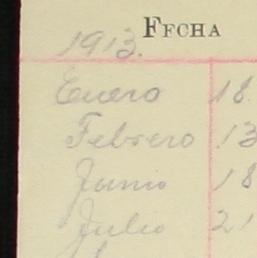 FECHA
1913.
Enero 18
Febrero 13
Junio 18
Julio 21